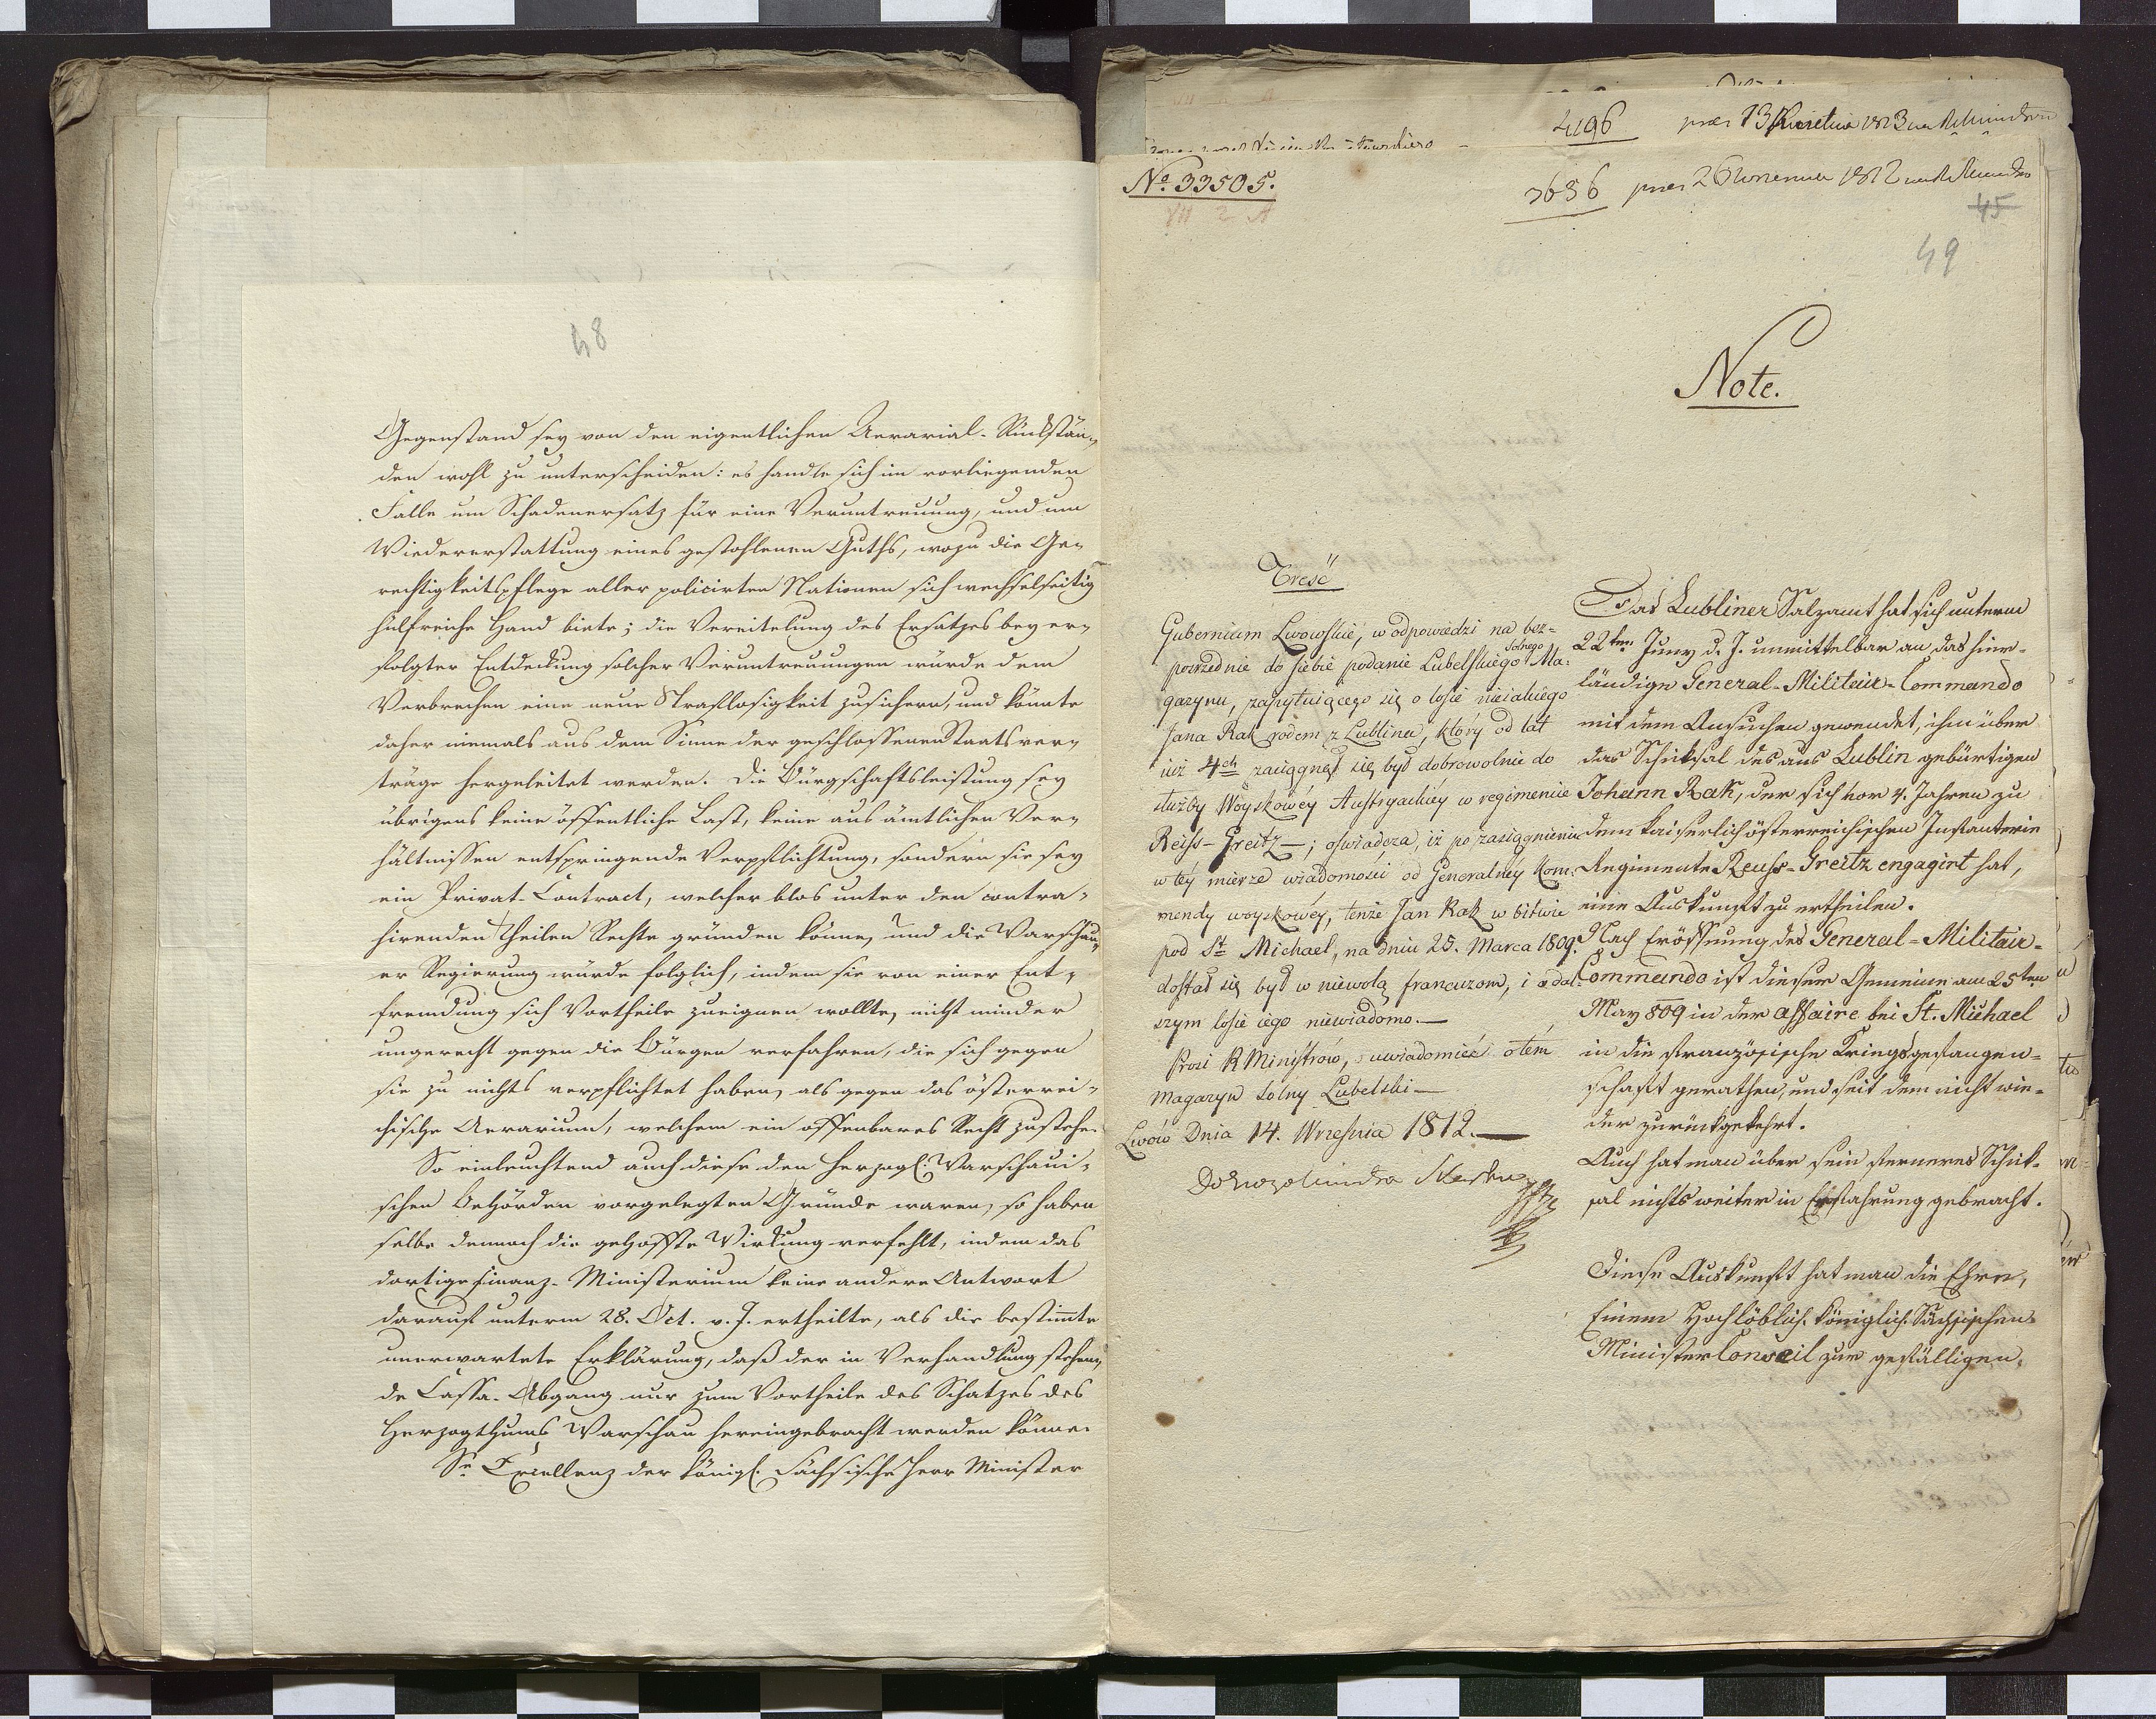 48
Gegenstand sey von den eigentlichen Aerarial-Rückstän-
den wohl zu unterscheiden: es handle sich im vorliegenden
Falle um Schadenersatz für eine Veruntreuung, und um
Wiedererstattung eines gestohlenen Guths, wozu die Ge-
rechtigkeitspflege aller policirten Nationen sich wechselseitig
hülfreiche Hand biete; die Vereitelung des Ersatzes bey er-
folgter Entdeckung solcher Veruntreuungen würde dem
Verbrechen eine neue Straflosigkeit zusichern, und könnte
daher niemals aus dem Sinne der geschlossenen Staatsver-
träge hergeleitet werden. Die Bürgschaftsleistung sey
übrigens keine öffentliche Last, keine aus ämtlichen Ver-
hältnissen entspringende Verpflichtung, sondern sie sey
ein Privat-Contract, welcher blos unter den contra-
hirenden Theilen Rechte gründen könne, und die Warschau-
er Regierung würde folglich, indem sie von einer Ent-
fremdung sich Vortheile zueignen wollte, nicht minder
ungerecht gegen die Bürgen verfahren, die sich gegen
sie zu nichts verpflichtet haben, als gegen das österrei-
chische Aerarium, welchem ein offenbares Recht zustehe.
So einleuchtend auch diese den Herzogl. Warschaui-
schen Behörden vorgelegten Gründe waren, so haben
selbe dennoch die gehoffte Wirkung verfehlt, indem das
dortige Finanz-Ministerium keine andere Antwort
darauf unterm 28. Oct. v. J. ertheilte, als die bestimmte
unerwartete Erklärung, daß der in Verhandlung stehen-
de Cassa-Abgang nur zum Vortheile des Schatzes des
Herzogthums Warschau hereingebracht werden könne.
Se Excellenz der königl. Sächsische Herr Minister
4196 prez 13 Kwietnia 1813
No. 33505.
VII 2 A
3656 prez 26 Wrzesnia 1812
45
49
Note.
Treść
Gubernium Lwowskie, w odpowiedzi na bez-
pośrednie do siebie podanie Lubelskiego Solnego Ma-
gazynu, zapytuiącego się o losie nieiakiego
Jana Rak rodem z Lublina, który od lat
iuż 4ch zaciągnął się był dobrowolnie do
służby Woyskowéy Austryackiéy w regimencie
Reiss-Greitz —; oświadcza, iż po zasiągnieniu
w téy mierze wiadomości od Generalnéy Kom-
mendy woyskowéy, tenże Jan Rak w bitwie
pod St Michael, na dniu 25. Marca 1809.
dostał się był w niewolą francuzom, i o dal-
szym losie iego niewiadomo.—
Prosi R Ministrów, uwiadomić o tem
Magazyn Solny Lubelski—
Lwów Dnia 14. Września 1812.—
Das Lubliner Salzamt hat sich unterm
22ten Juny d. J. unmittelbar an das hier-
ländige General-Militair-Commando
mit dem Ansuchen gewendet, ihm über
das Schiksal des aus Lublin gebürtigen
Johann Rak, der sich vor 4. Jahren zu
dem kaiserlich österreichischen Infanterie
Regimente Reuss-Greitz engagirt hat,
eine Auskunft zu ertheilen.
Nach Eröffnung des General-Militair-
Commando ist dieser Gemeine am 25ten
May 809 in der affaire bei St. Michael
in die französische Kriegsgefangen-
schaft gerathen, und seit dem nicht wie-
der zurückgekehrt.
Auch hat man über sein ferneres Schik-
sal nichts weiter in Erfahrung gebracht.
Diese Auskunft hat man die Ehre,
Einem Hochlöblich. königlich. Sächsischen
Minister Conseil zur gefälligen